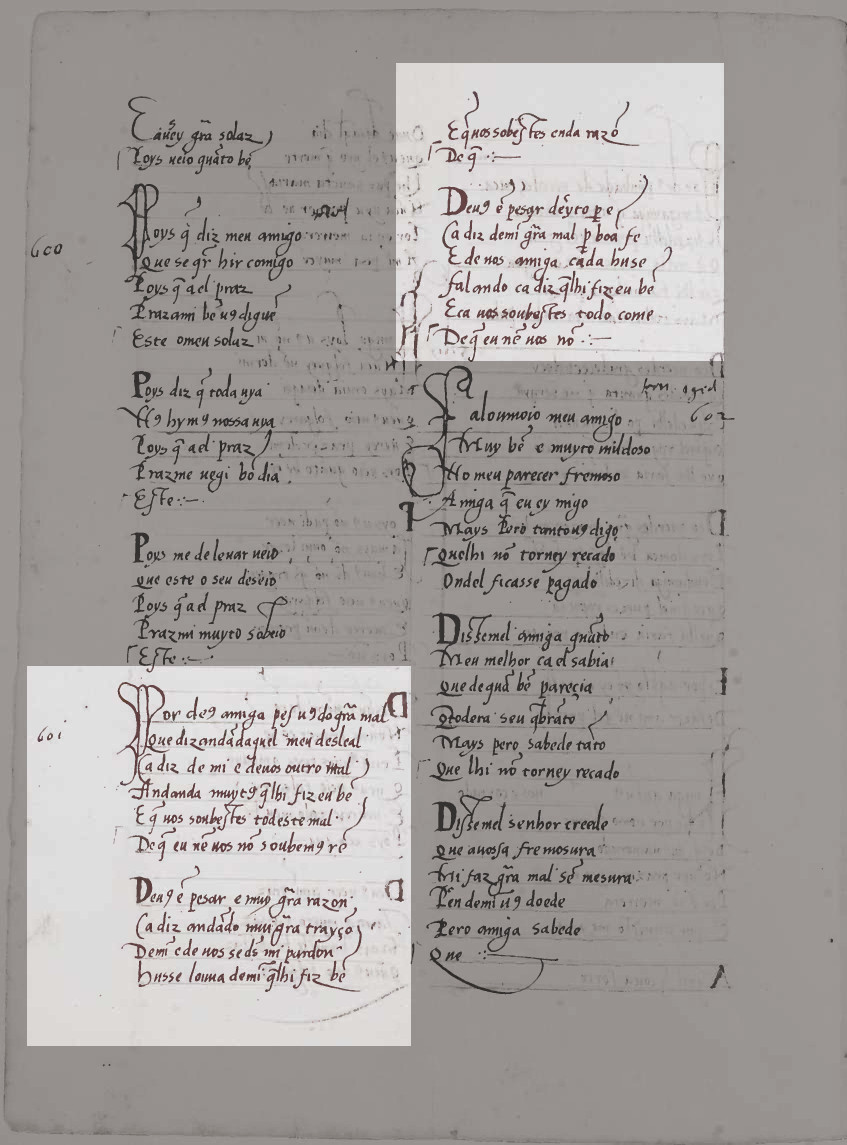 E averey g̃ra solaz
Poys veio quāto bē
600
Poys q̄ diz meu amigo
Que se q̄r hir comigo
Poys q̄ a el praz
Prazami bē uꝯ digue
Este o meu solaz
Poys diz q̄ toda uya
Hꝯ hymꝯ nossa uya
Poys q̄ a el praz
Praz me uegi bō dia
Este
Poys me de leuar ueio
que este o seu deseio
Poys q̄ a el praz
Praz mi muyto sobeio
Este
601
Por deꝯ amiga pesuꝯ do g̃ra mal
Que diz andãdaquel meu desleal
Ca diz de mi e deuos outro tal
Andando muytꝯ q̄lhi fiz eu bē
E q̄ uos soubestes todeste mal
De q̄ eu nē uos nō soubemꝯ rē
Deuꝯ ē pesar e muy g̃ra razon
Ca diz andādo mui g̃ra trayçō
Demi e de uos se ds̄ mi pardon
husse louua demi q̄lhi fiz bē
E q̄ uos sobestes enda razō
De q̄
Deuꝯ ē pesar deyto p̱ e
Ca diz demi g̃ra mal p̱ boa fe
E de uos amiga cada husse
falando ca diz q̄lhi fiz eu bē
E ca uos soubestes todo come
De q̄ eu nē uos nō
602
Falou mo io meu amigo
Muy bē e muyto mildoso
No meu parecer fremoso
Amiga q̄ eu ey migo
Mays Pero tanto uꝯ digo
Que lhi nō torney recado
Ondel ficasse pagado
Dissemel amiga quāto
Meu melhor ca el sabia
Que de quā bē parecia
Q̄ todera seu q̄brāto
Mays pero sabede tāto
Que lhi nō torney recado
Dissemel senhor creede
Que a uossa fremosura
Mi faz g̃ra mal sē mesura
Pēn demi uꝯ doede
Pero amiga sabede
Que